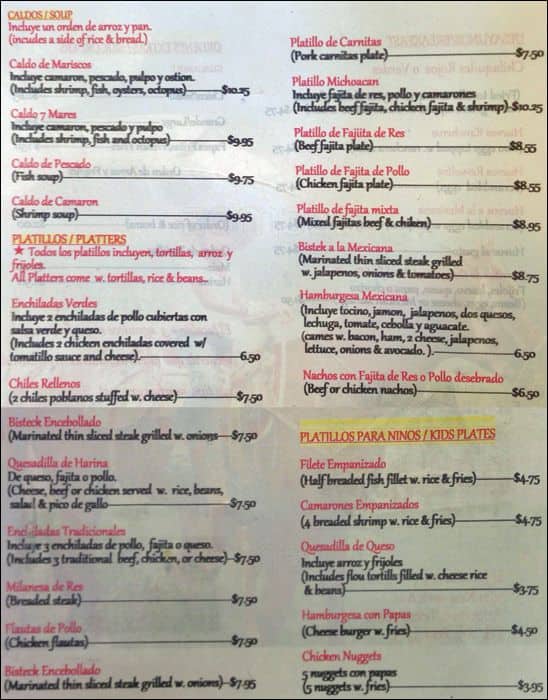 CALDOS / SOUP
Incluye un orden de arroz y pan.
(incudes a side of rice & bread.)
Caldo de Mariscos
Incluye camaron, pescado, pulpo y ostion.
(Includes shrimp, fish, oysters, octopus) $10.25
Caldo 7 Mares
Incluye camaron, pescado y pulpo
(Includes shrimp, fish and octopus) $9.95
Caldo de Pescado
(Fish soup) $9.75
Caldo de Camaron
(Shrimp soup) $9.95
PLATILLOS / PLATTERS
★ Todos los platillos incluyen, tortillas, arroz y
frijoles.
All Platters come w. tortillas, rice & beans..
Enchiladas Verdes
Incluye 2 enchiladas de pollo cubiertas con
salsa verde y queso.
(Includes 2 chicken enchiladas covered w/
tomatillo sauce and cheese). 6.50
Chiles Rellenos
(2 chiles poblanos stuffed w. cheese) $7.50
Bisteck Encebollado
(Marinated thin sliced steak grilled w. onions $7.50
Quesadilla de Harina
De queso, fajita o pollo.
(Cheese, beef or chicken served w. rice, beans,
salad & pico de gallo $7.50
Enchiladas Tradicionales
Incluye 3 enchiladas de pollo, fajita o queso.
(Includes 3 traditional beef, chicken, or cheese) $7.50
Milanesa de Res
(Breaded steak) $7.50
Flautas de Pollo
(Chicken flautas) $7.50
Bisteck Encebollado
(Marinated thin sliced steak grilled w. onions) $7.95
Platillo de Carnitas
(Pork carnitas plate) $7.50
Platillo Michoacan
Incluye fajita de res, pollo y camarones
(Includes beef fajita, chicken fajita & shrimp) $10.25
Platillo de Fajiita de Res
(Beef fajita plate) $8.55
Platillo de Fajita de Pollo
(Chicken fajita plate) $8.55
Platillo de fajita mixta
(Mixed fajitas beef & chiken) $8.95
Bistek a la Mexicana
(Marinated thin sliced steak grilled
w. jalapenos, onions & tomatoes) $8.75
Hamburgesa Mexicana
(Incluye tocino, jamon, jalapenos, dos quesos,
lechuga, tomate, cebolla y aguacate.
(cames w. bacon, ham, 2 cheese, jalapenos,
lettuce, onions & avocado. ) 6.50
Nachos con Fajita de Res o Pollo desebrado
(Beef or chicken nachos) $6.50
PLATILLOS PARA NINOS / KIDS PLATES
Filete Empanizado
(Half breaded fish fillet w. rice & fries) $4.75
Camarones Empanizados
(4 breaded shrimp w. rice & fries) $4.75
Quesadilla de Queso
Incluye arroz y frijoles
(Includes flou tortills filled w. cheese rice
& beans) $3.75
Hamburgesa con Papas
(Cheese burger w. fries) $4.50
Chicken Nuggets
5 nuggets con papas
(5 nuggets w. fries) $3.95